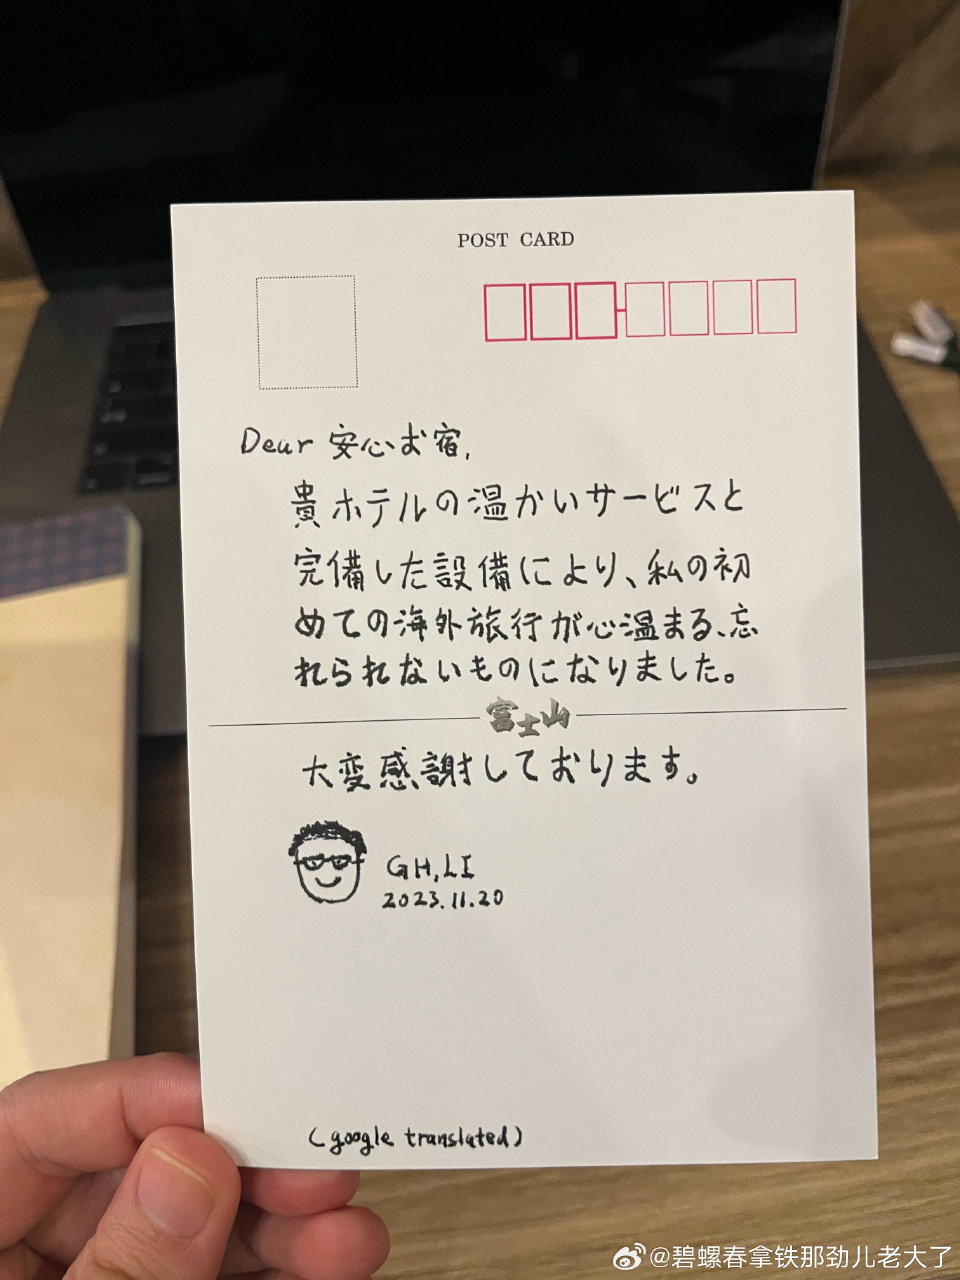 POST CARD
Dear 安心お宿,
貴ホテルの温かいサービスと
完備した設備により、私の初
めての海外旅行が心温まる、忘
れられないものになりました。
富士山
大変感謝しております。
GH,LI
2023.11.20
(google translated)
@碧螺春拿铁那劲儿老大了